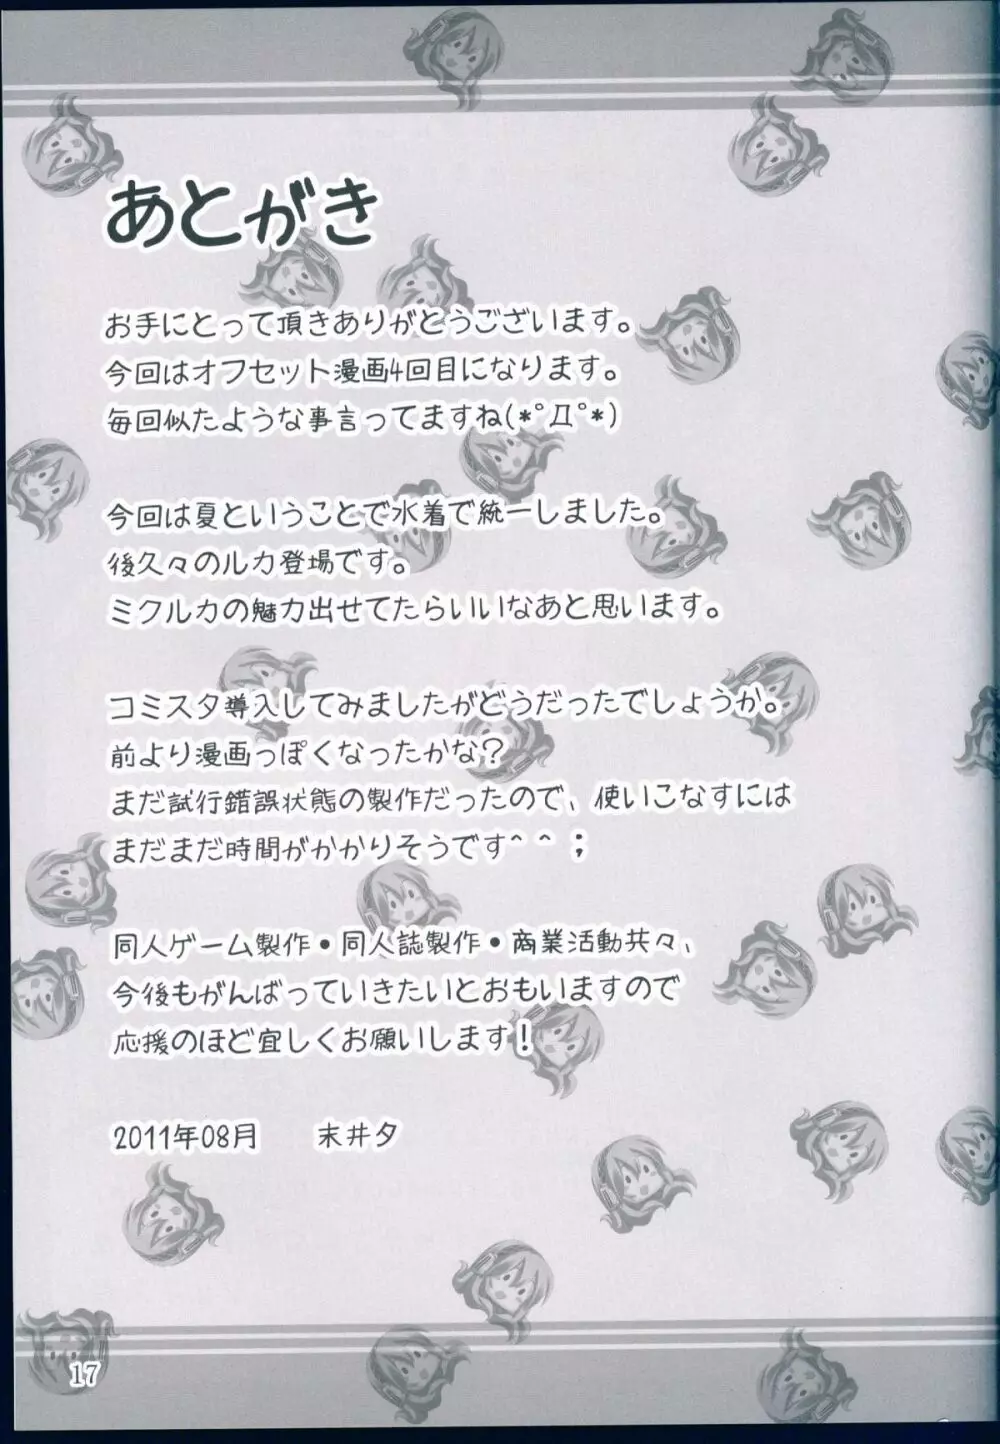 あとがき
お手にとって頂きありがとうございます。
今回はオフセット漫画4回目になります。
毎回似たような事言ってますね(*ﾟДﾟ*)
今回は夏ということで水着で統一しました。
後久々のルカ登場です。
ミクルカの魅力出せてたらいいなあと思います。
コミスタ導入してみましたがどうだったでしょうか。
前より漫画っぽくなったかな？
まだ試行錯誤状態の製作だったので、使いこなすには
まだまだ時間がかかりそうです＾＾；
同人ゲーム製作・同人誌製作・商業活動共々、
今後もがんばっていきたいとおもいますので
応援のほど宜しくお願いします！
2011年08月　　末井夕
17